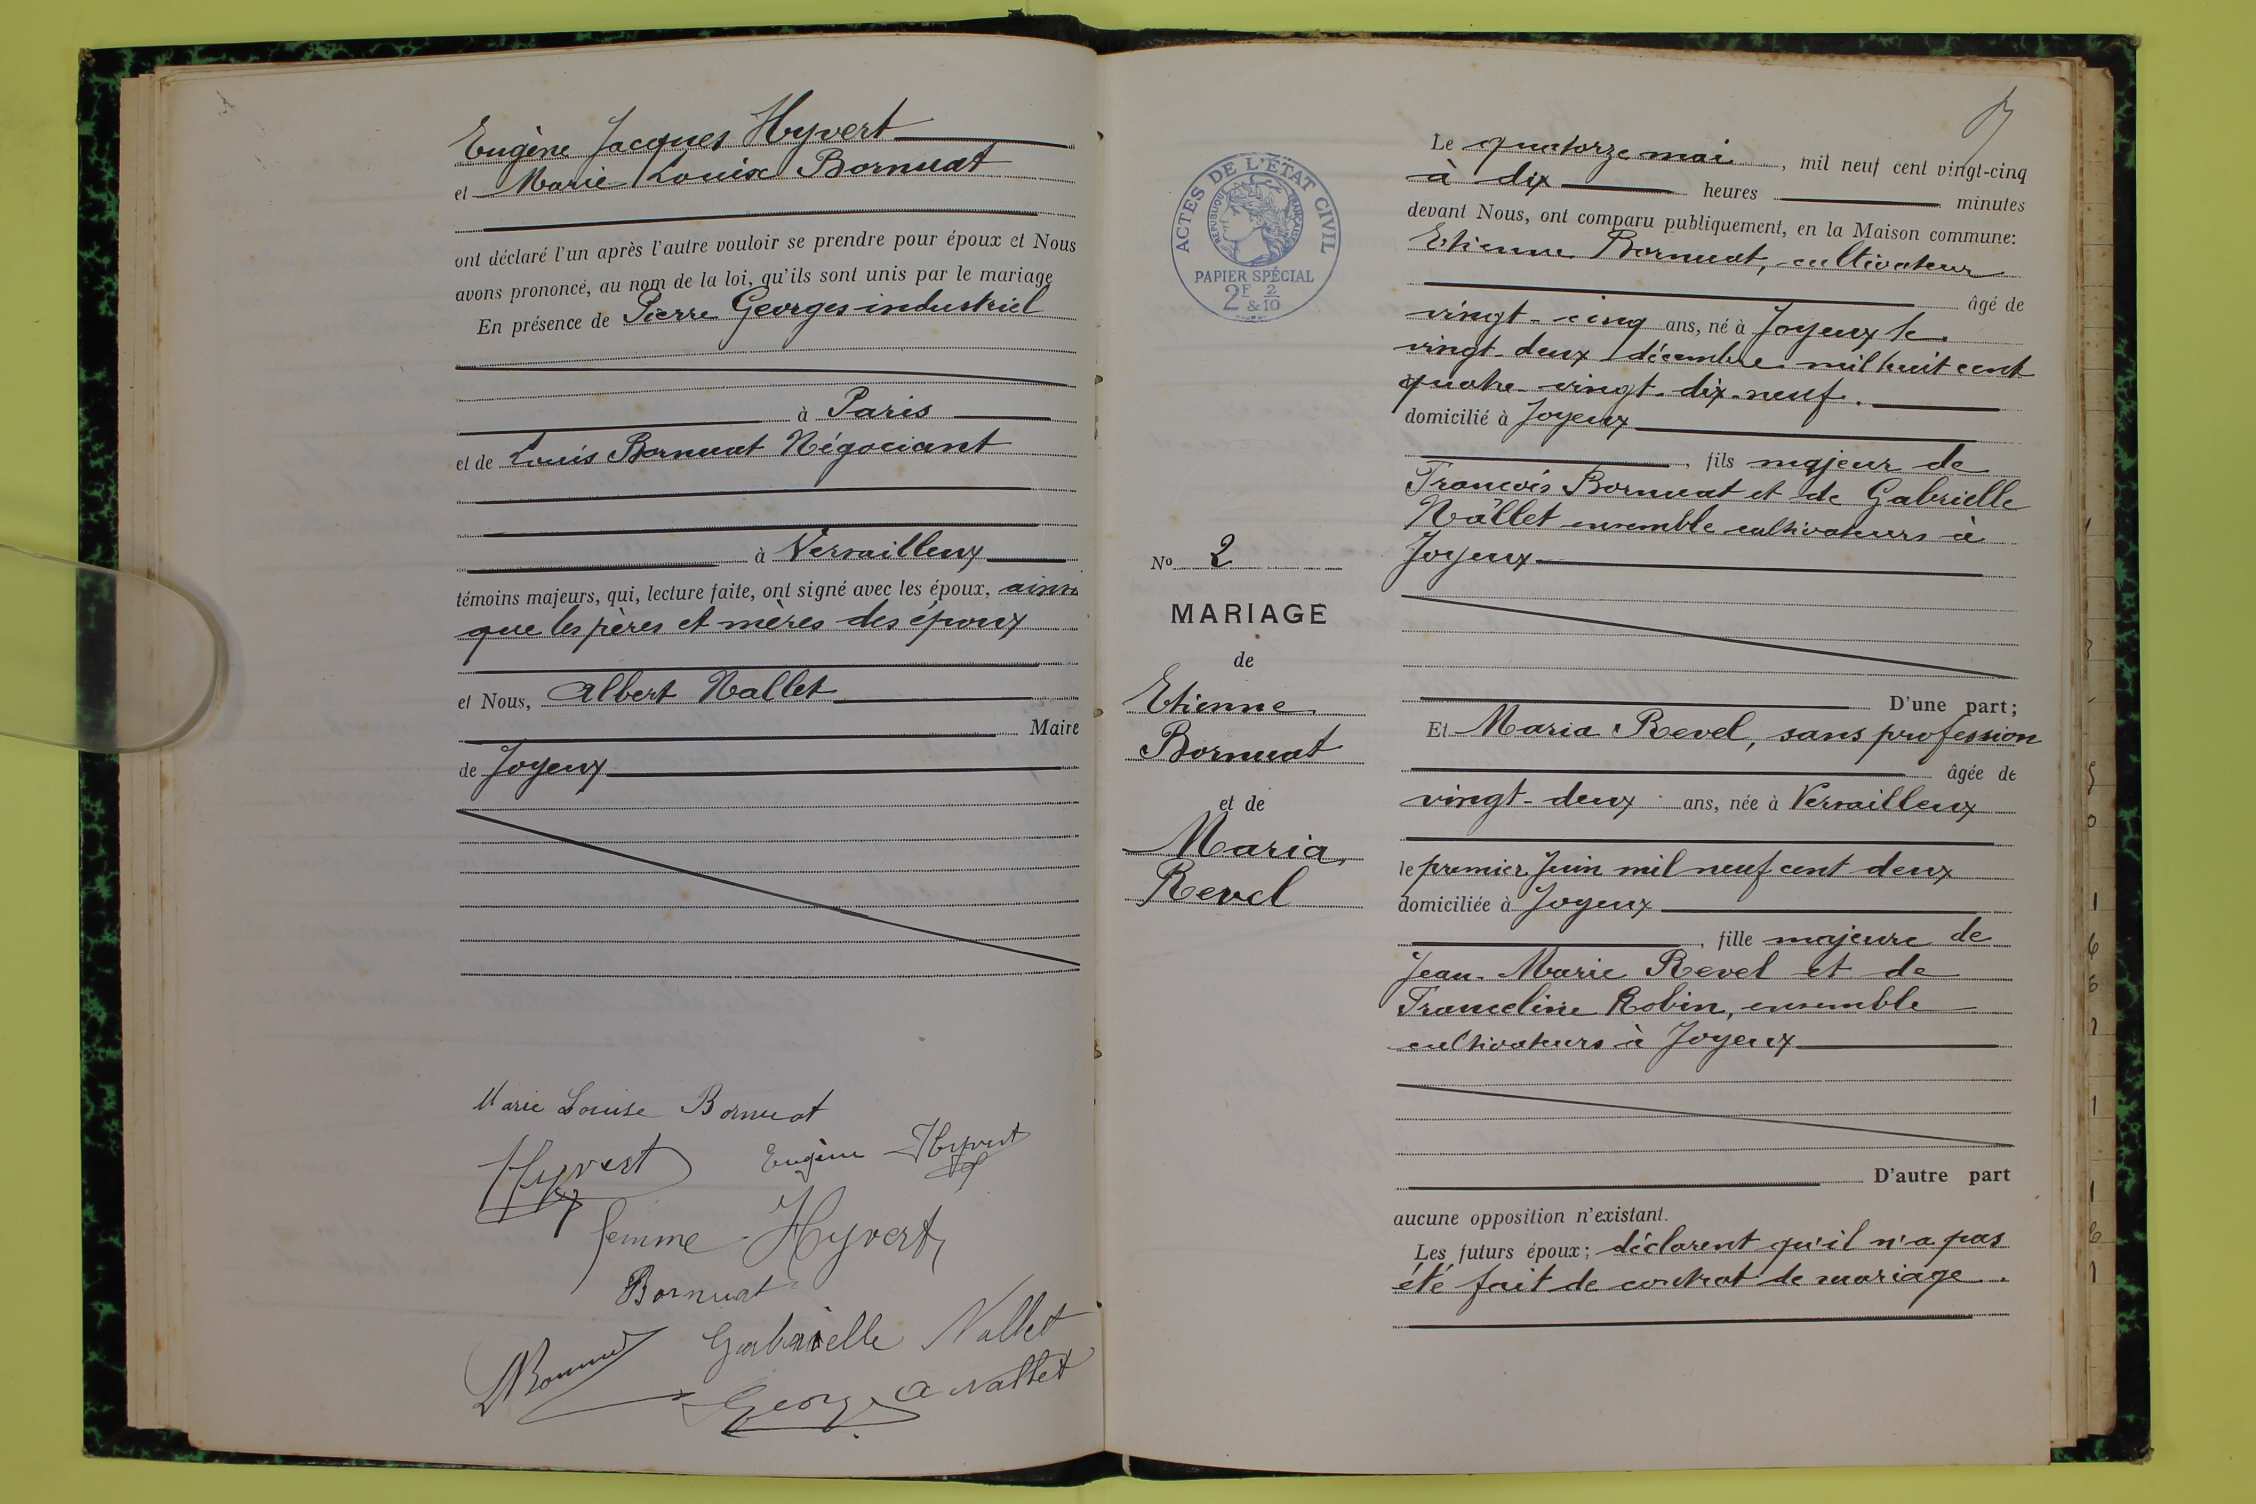 Eugène Jacques Hyvert
et Marie Louise Bornuat
ont déclaré l'un après l'autre vouloir se prendre pour époux et Nous
avons prononcé, au nom de la loi, qu'ils sont unis par le mariage
En présence de Pierre Georges industriel
à Paris
et de Louis Bornuat Négociant
à Versailleux
témoins majeurs, qui, lecture faite, ont signé avec les époux, ainsi
que les pères et mères des époux
et Nous, Albert Nallet
Maire
de Joyeux
Marie Louise Bornuat
Hyvert Eugène Hyvert
femme Hyvert
Bornuat
LBornuat Gabrielle Nallet
Georges A Nallet
ACTES DE L'ÉTAT CIVIL
RÉPUBLIQUE FRANÇAISE
PAPIER SPÉCIAL
2F & 2/10
No 2
MARIAGE
de
Etienne
Bornuat
et de
Maria
Revel
Le quatorze mai, mil neuf cent vingt-cinq
à dix heures minutes
devant Nous, ont comparu publiquement, en la Maison commune:
Etienne Bornuat, cultivateur
âgé de
vingt-cinq ans, né à Joyeux le
vingt-deux décembre mil huit cent
quatre-vingt-dix-neuf.
domicilié à Joyeux
, fils majeur de
Francois Bornuat et de Gabrielle
Nallet ensemble cultivateurs à
Joyeux
D'une part;
Et Maria Revel, sans profession
âgée de
vingt-deux ans, née à Versailleux
le premier Juin mil neuf cent deux
domiciliée à Joyeux
, fille majeure de
Jean-Marie Revel et de
Franceline Robin, ensemble
cultivateurs à Joyeux
D'autre part
aucune opposition n'existant.
Les futurs époux; déclarent qu'il n'a pas
été fait de contrat de mariage.